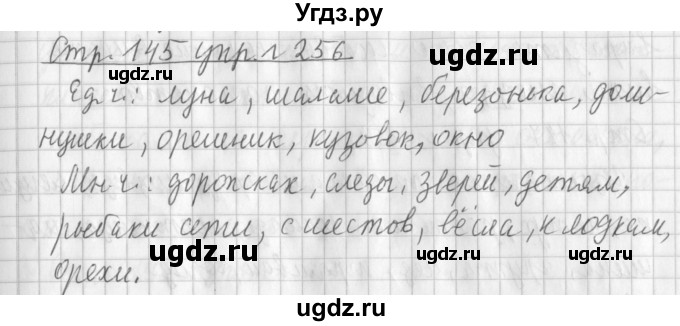 Угдз.ру
Стр. 145 упр. г 256
ugdz.ru ugdz.ru
Ед.ч.: луна, шалаше, березонька, дом-
нушки, орешник, кузовок, окно
ugdz.ru
Мн.ч.: дорожках, следы, зверей, детям,
ugdz.ru
рыбаки сети, с шестов, вёсла, к лодкам,
ugdz.ru ugdz.ru
орехи.
ugdz.ru